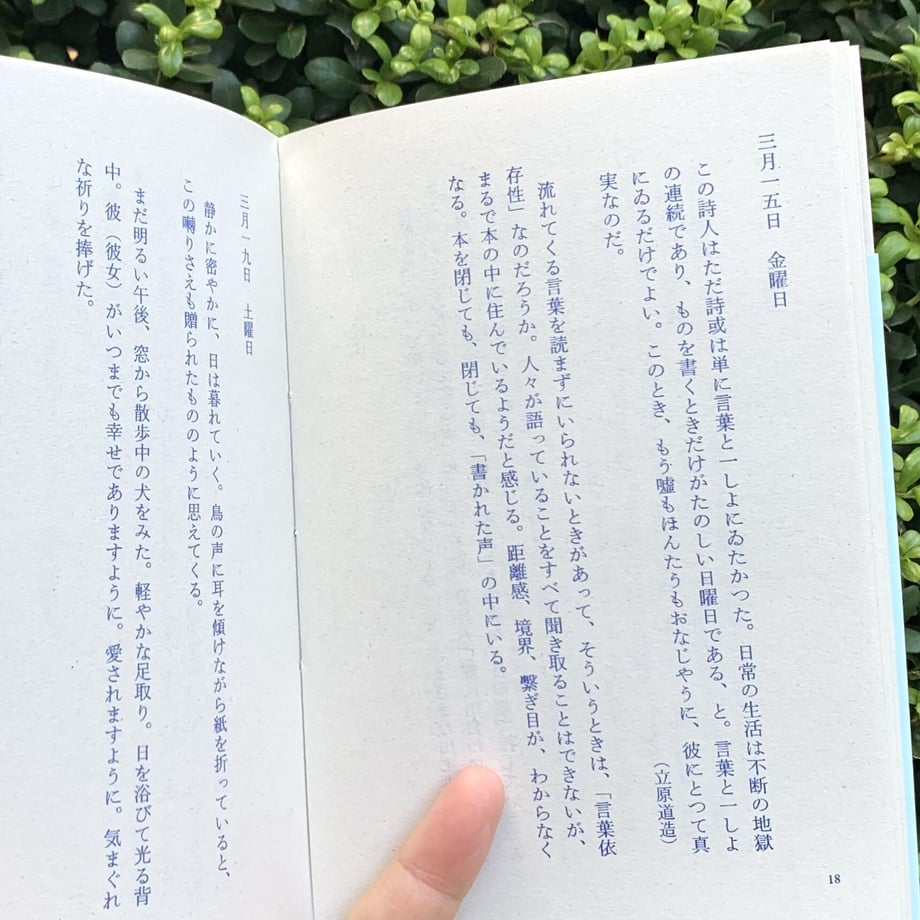 三月一五日　金曜日
この詩人はただ詩或は単に言葉と一しよにゐたかつた。日常の生活は不断の地獄
の連続であり、ものを書くときだけがたのしい日曜日である、と。言葉と一しよ
にゐるだけでよい。このとき、もう嘘もほんたうもおなじやうに、彼にとつて真
実なのだ。
（立原道造）
流れてくる言葉を読まずにいられないときがあって、そういうときは、「言葉依
存性」なのだろうか。人々が語っていることをすべて聞き取ることはできないが、
まるで本の中に住んでいるようだと感じる。距離感、境界、繋ぎ目が、わからなく
なる。本を閉じても、閉じても、「書かれた声」の中にいる。
18
三月一九日　土曜日
静かに密やかに、日は暮れていく。鳥の声に耳を傾けながら紙を折っていると、
この囀りさえも贈られたもののように思えてくる。
まだ明るい午後、窓から散歩中の犬をみた。軽やかな足取り。日を浴びて光る背
中。彼（彼女）がいつまでも幸せでありますように。愛されますように。気まぐれ
な祈りを捧げた。